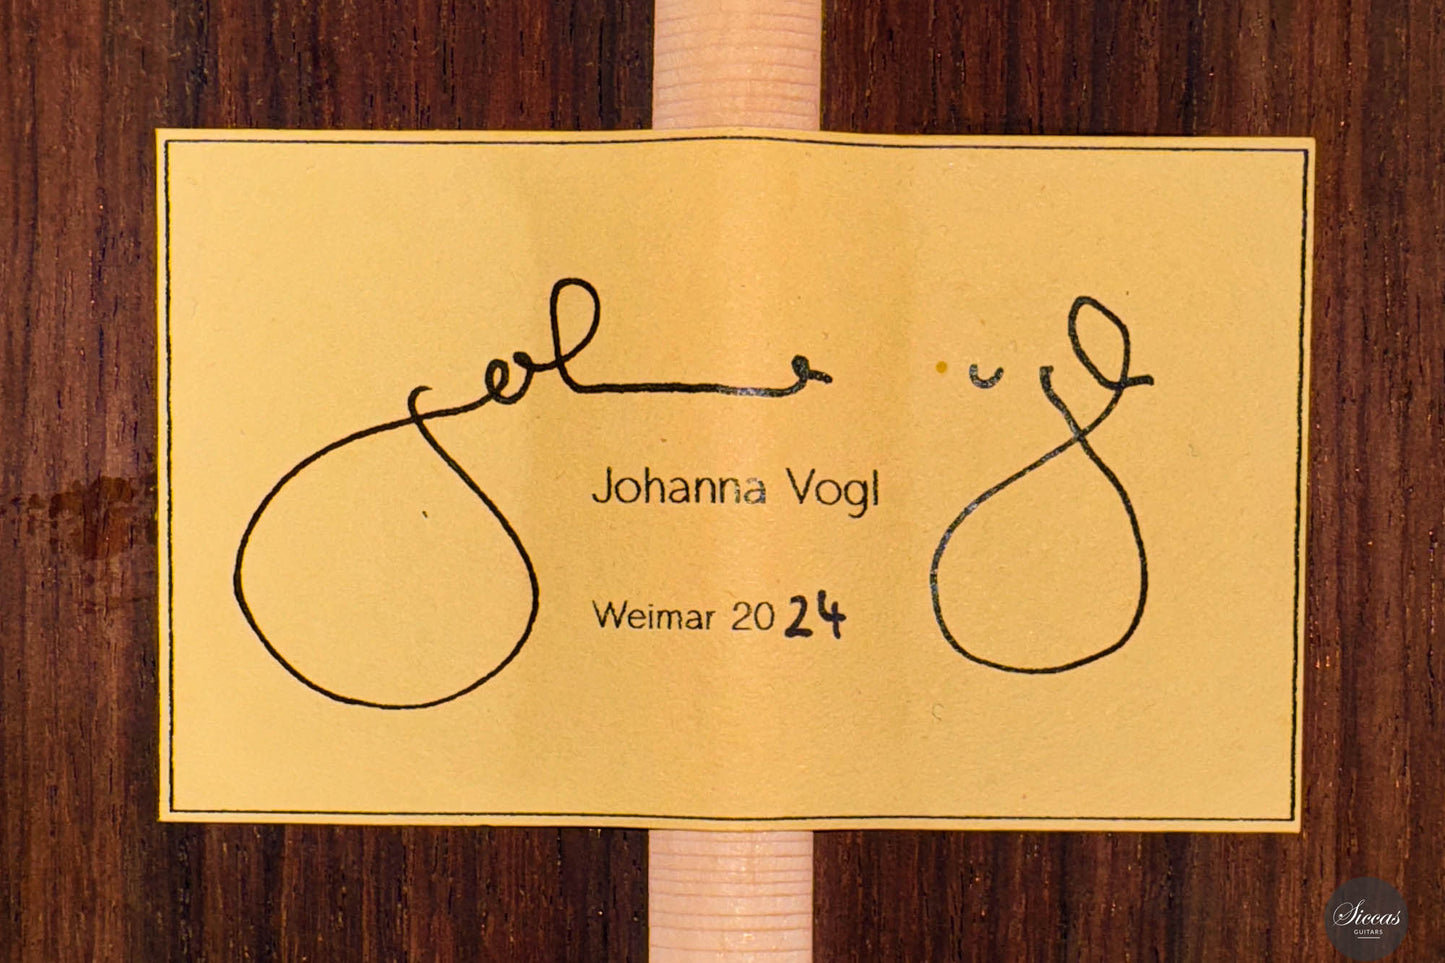 Johanna Vogl
Weimar 2024
Siccas
GUITARS